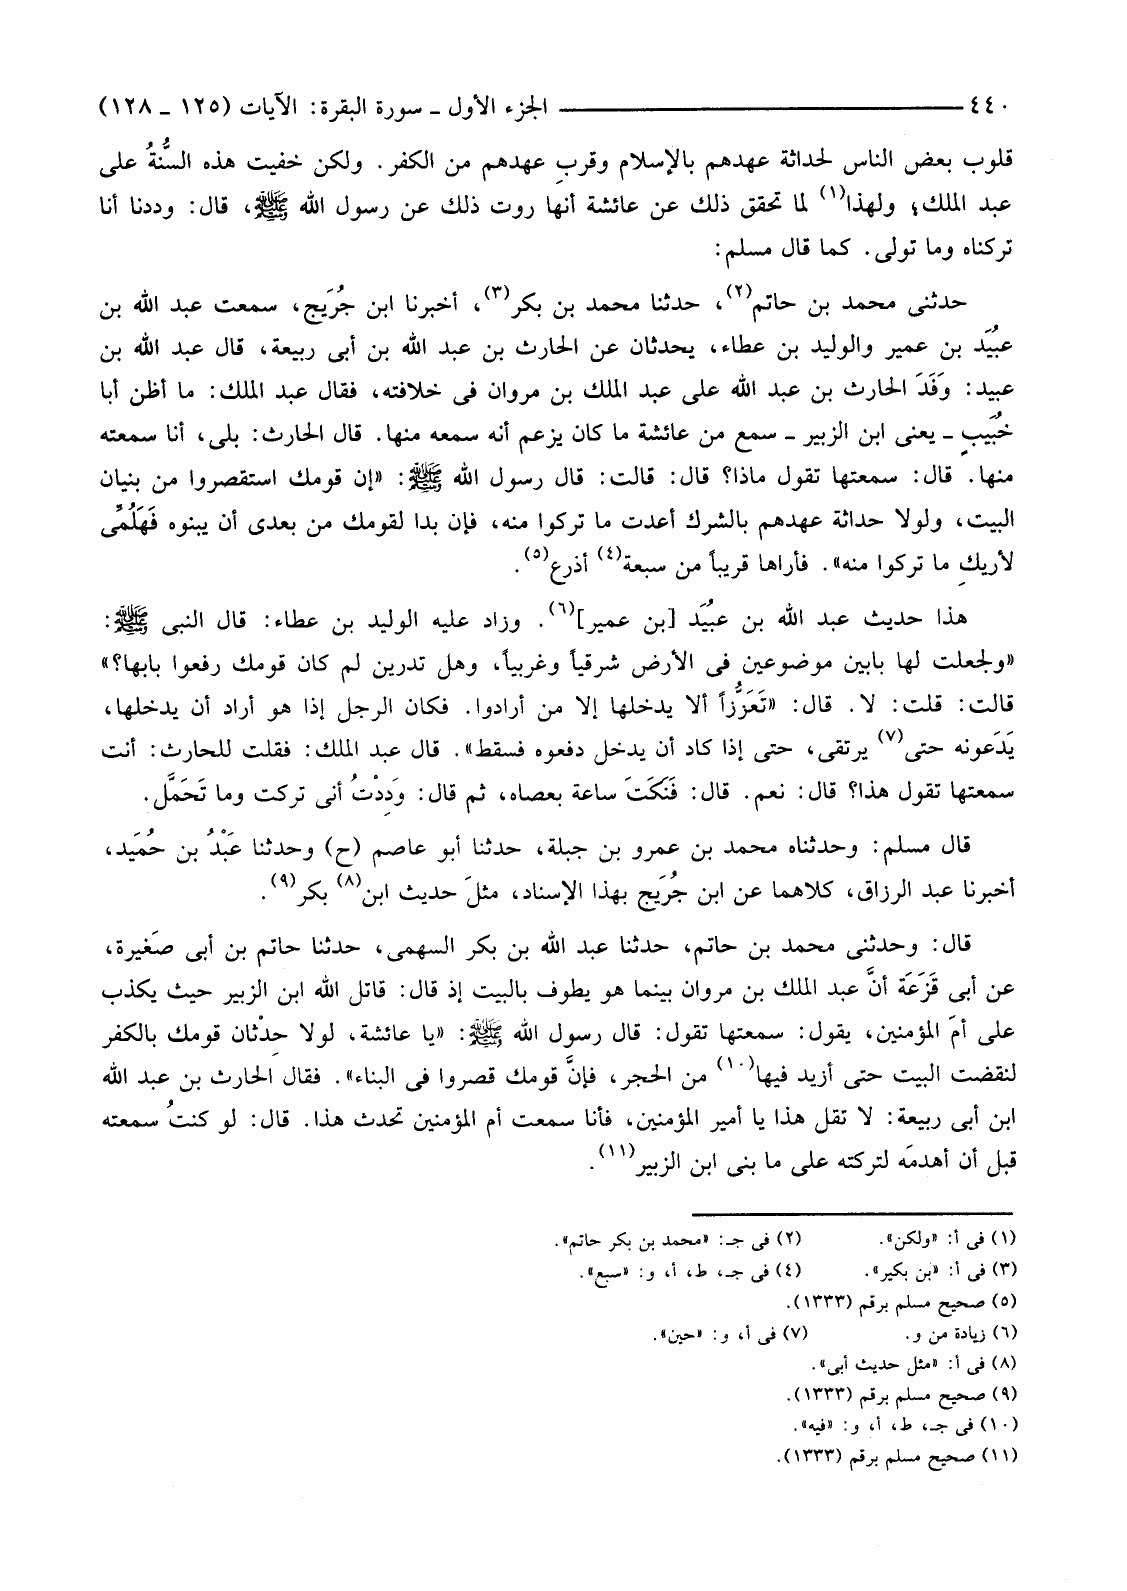 ٤٤٠ ـــــــ الجزء الأول ـ سورة البقرة: الآيات (١٢٥ ـ ١٢٨)
قلوب بعض الناس لحداثة عهدهم بالإسلام وقربِ عهدهم من الكفر. ولكن خفيت هذه السُّنةُ على
عبد الملك؛ ولهذا(١) لما تحقق ذلك عن عائشة أنها روت ذلك عن رسول الله ﷺ، قال: وددنا أنا
تركناه وما تولى. كما قال مسلم:
حدثنى محمد بن حاتم(٢)، حدثنا محمد بن بكر(٣)، أخبرنا ابن جُرَيج، سمعت عبد الله بن
عبُيَد بن عمير والوليد بن عطاء، يحدثان عن الحارث بن عبد الله بن أبى ربيعة، قال عبد الله بن
عبيد: وَفَدَ الحارث بن عبد الله على عبد الملك بن مروان فى خلافته، فقال عبد الملك: ما أظن أبا
خُبَيبٍ ـ يعنى ابن الزبير ـ سمع من عائشة ما كان يزعم أنه سمعه منها. قال الحارث: بلى، أنا سمعته
منها. قال: سمعتها تقول ماذا؟ قال: قالت: قال رسول الله ﷺ: «إن قومك استقصروا من بنيان
البيت، ولولا حداثة عهدهم بالشرك أعدت ما تركوا منه، فإن بدا لقومك من بعدى أن يبنوه فَهَلُمِّى
لأريكِ ما تركوا منه». فأراها قريباً من سبعة(٤) أذرع(٥).
هذا حديث عبد الله بن عبُيَد [بن عمير](٦). وزاد عليه الوليد بن عطاء: قال النبى ﷺ:
«ولجعلت لها بابين موضوعين فى الأرض شرقياً وغربياً، وهل تدرين لم كان قومك رفعوا بابها؟»
قالت: قلت: لا. قال: «تَعَزُّزاً ألا يدخلها إلا من أرادوا. فكان الرجل إذا هو أراد أن يدخلها،
يَدَعونه حتى(٧) يرتقى، حتى إذا كاد أن يدخل دفعوه فسقط». قال عبد الملك: فقلت للحارث: أنت
سمعتها تقول هذا؟ قال: نعم. قال: فَنَكَتَ ساعة بعصاه، ثم قال: وَدِدْتُ أنى تركت وما تَحَمَّل.
قال مسلم: وحدثناه محمد بن عمرو بن جبلة، حدثنا أبو عاصم (ح) وحدثنا عَبْدُ بن حُمَيد،
أخبرنا عبد الرزاق، كلاهما عن ابن جُرَيج بهذا الإسناد، مثلَ حديث ابن(٨) بكر(٩).
قال: وحدثنى محمد بن حاتم، حدثنا عبد الله بن بكر السهمى، حدثنا حاتم بن أبى صَغيرة،
عن أبى قَزَعَة أنَّ عبد الملك بن مروان بينما هو يطوف بالبيت إذ قال: قاتل الله ابن الزبير حيث يكذب
على أم المؤمنين، يقول: سمعتها تقول: قال رسول الله ﷺ: «يا عائشة، لولا حِدْثان قومك بالكفر
لنقضت البيت حتى أزيد فيها(١٠) من الحجر، فإنَّ قومك قصروا فى البناء». فقال الحارث بن عبد الله
ابن أبى ربيعة: لا تقل هذا يا أمير المؤمنين، فأنا سمعت أم المؤمنين تحدث هذا. قال: لو كنتُ سمعته
قبل أن أهدمَه لتركته على ما بنى ابن الزبير(١١).
(١) فى أ: «ولكن». (٢) فى جـ: «محمد بن بكر حاتم».
(٣) فى أ: «بن بكير». (٤) فى جـ، ط، أ، و: «سبع».
(٥) صحيح مسلم برقم (١٣٣٣).
(٦) زيادة من و. (٧) فى أ، و: «حين».
(٨) فى أ: «مثل حديث أبى».
(٩) صحيح مسلم برقم (١٣٣٣).
(١٠) فى جـ، ط، أ، و: «فيه».
(١١) صحيح مسلم برقم (١٣٣٣).